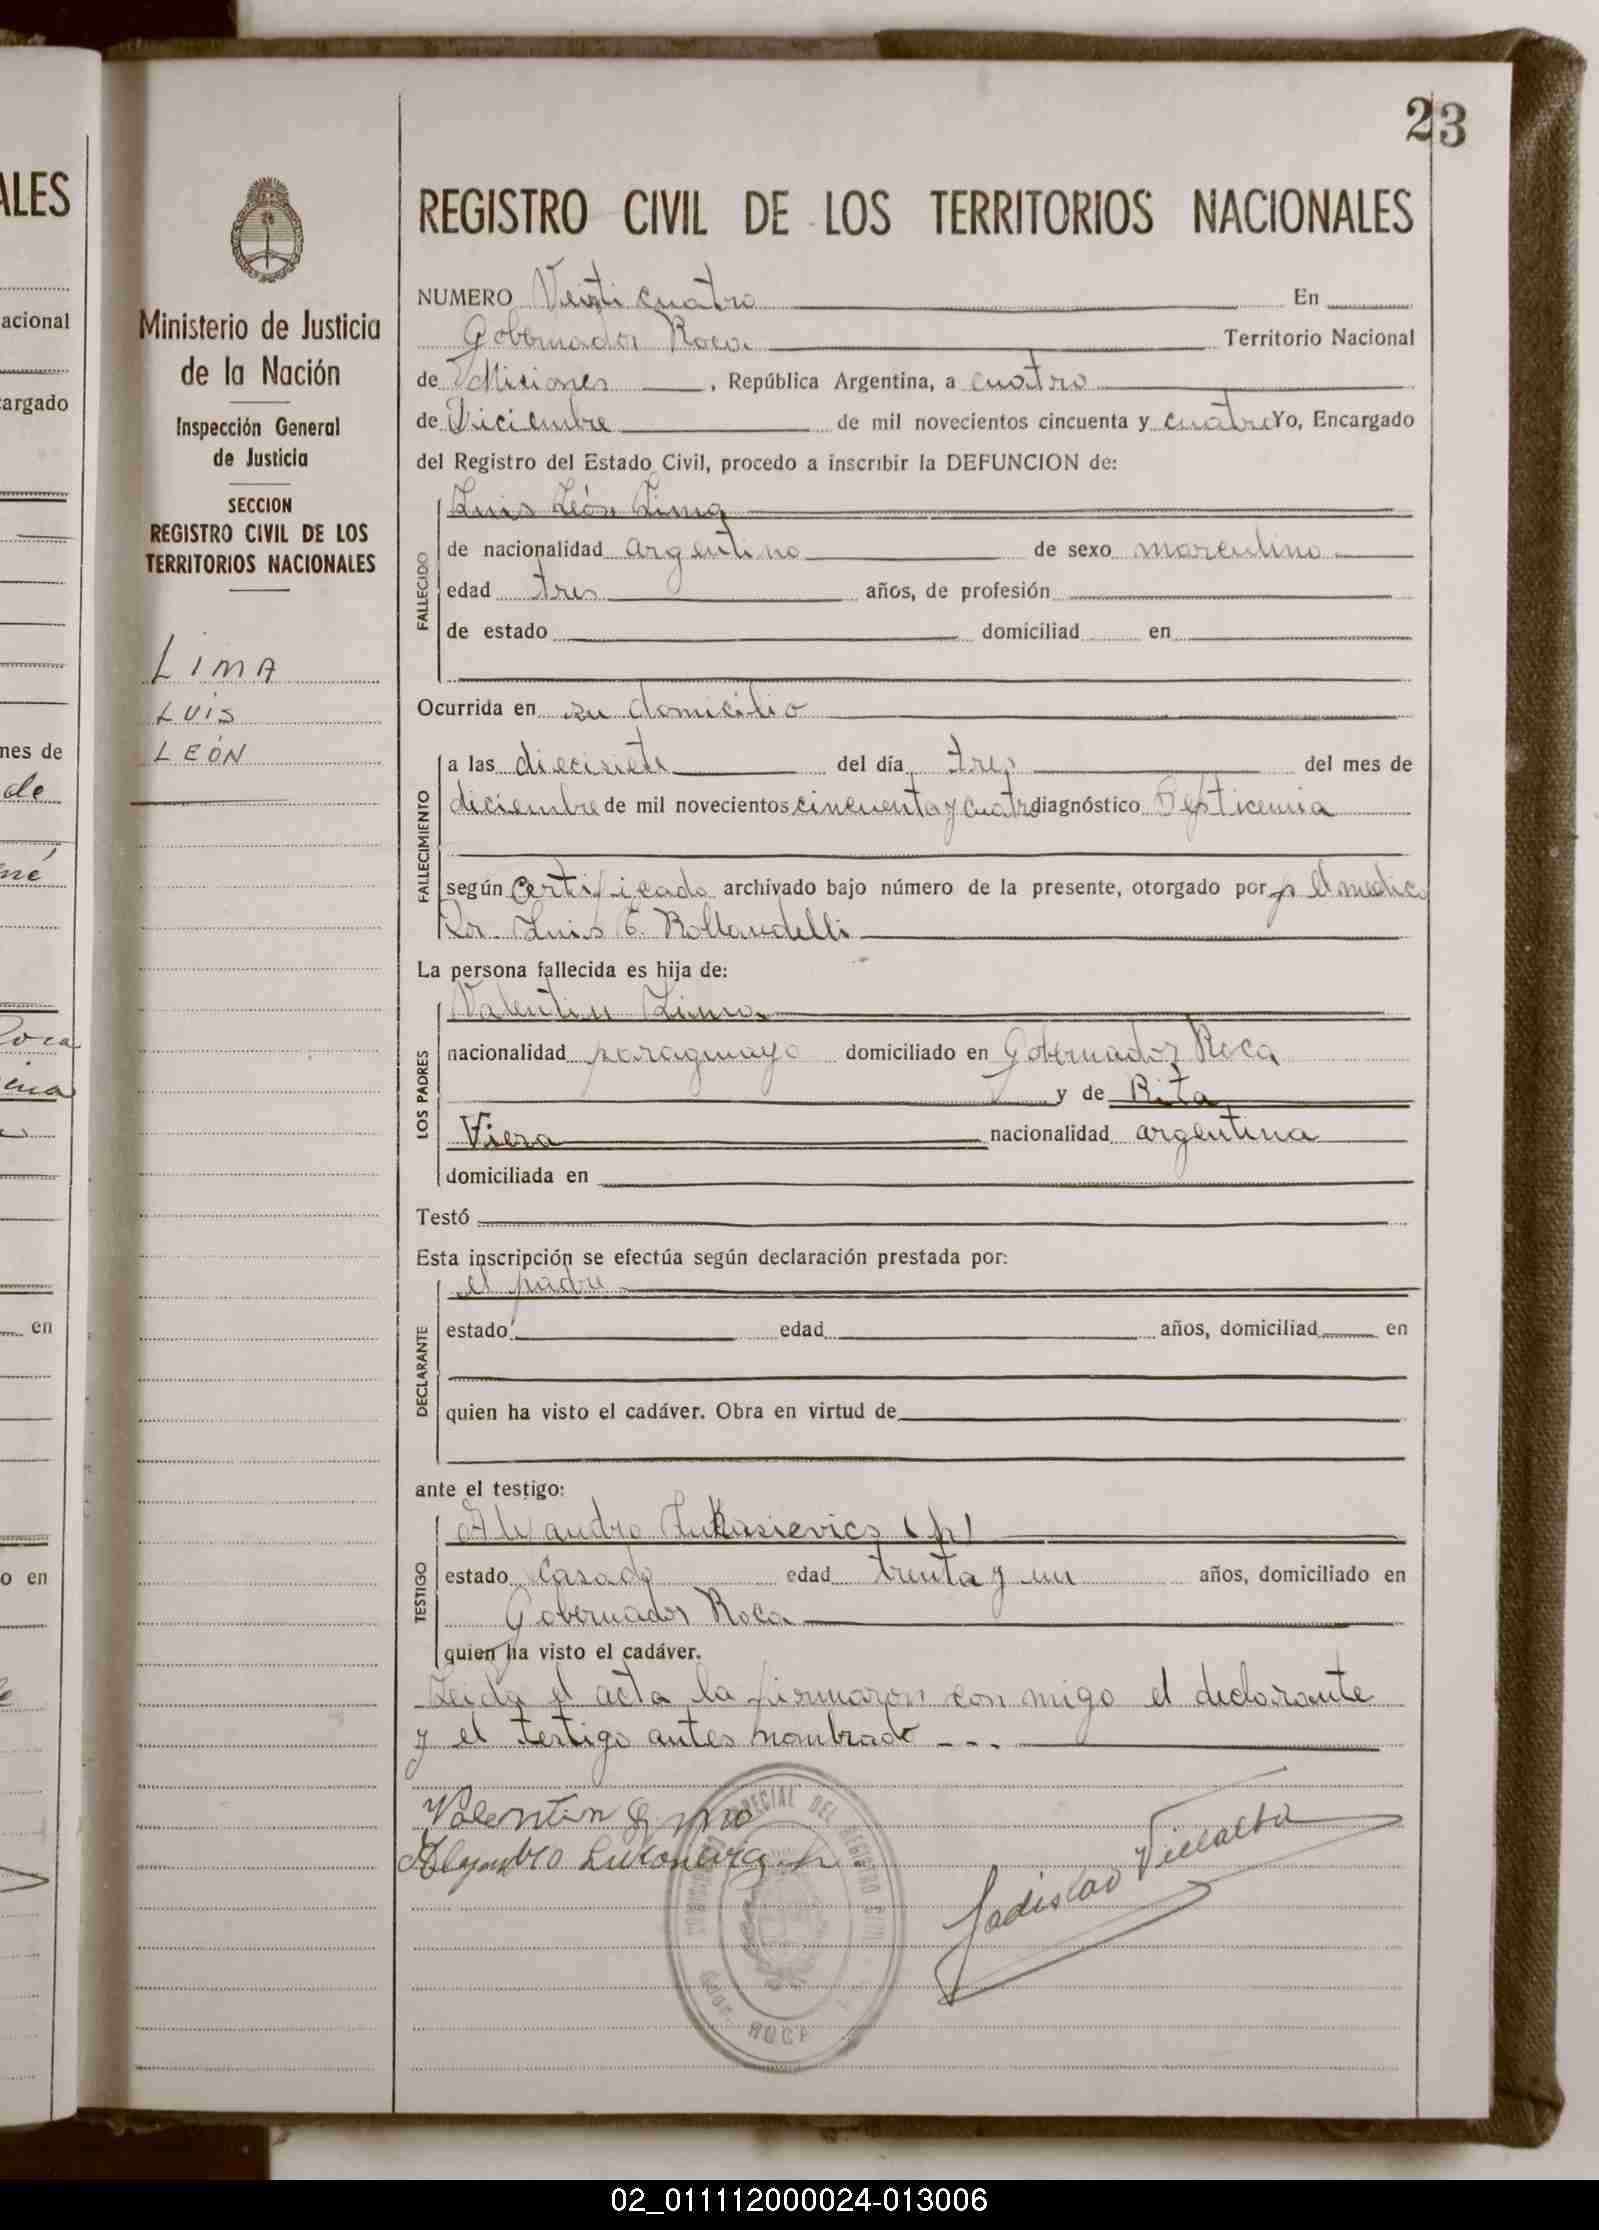 23
ALES
acional
cargado
mes de
de
né
Roca
en
o en
Ministerio de Justicia
de la Nación
Inspección General
de Justicia
SECCION
REGISTRO CIVIL DE LOS
TERRITORIOS NACIONALES
LIMA
LUIS
LEÓN
REGISTRO CIVIL DE LOS TERRITORIOS NACIONALES
NUMERO Veinti cuatro En
Gobernador Roca Territorio Nacional
de Misiones, República Argentina, a cuatro
de Diciembre de mil novecientos cincuenta y cuatro Yo, Encargado
del Registro del Estado Civil, procedo a inscribir la DEFUNCION de:
Luis León Lima
FALLECIDO
de nacionalidad argentino de sexo masculino
edad tres años, de profesión
de estado domiciliad en
Ocurrida en su domicilio
FALLECIMIENTO
a las diecisiete del día tres del mes de
diciembre de mil novecientos cincuenta y cuatro diagnóstico Septicemia
según certificado archivado bajo número de la presente, otorgado por p el medico
Dr. Luis E. Rollandelli
La persona fallecida es hija de:
LOS PADRES
Valentin Lima
nacionalidad paraguayo domiciliado en Gobernador Roca
y de Rita
Viera nacionalidad argentina
domiciliada en
Testó
Esta inscripción se efectúa según declaración prestada por:
DECLARANTE
el padre
estado edad años, domiciliad en
quien ha visto el cadáver. Obra en virtud de
ante el testigo:
TESTIGO
Alejandro Lukasievics (h)
estado casado edad treinta y un años, domiciliado en
Gobernador Roca
quien ha visto el cadáver.
Leida el acta la firmaron con migo el declarante
y el testigo antes nombrado - - -
Valentin Lima
Alejandro h.
Ladislao Villalba
ESPECIAL DEL REGISTRO CIVIL
GDOR. ROCA
02_011112000024-013006